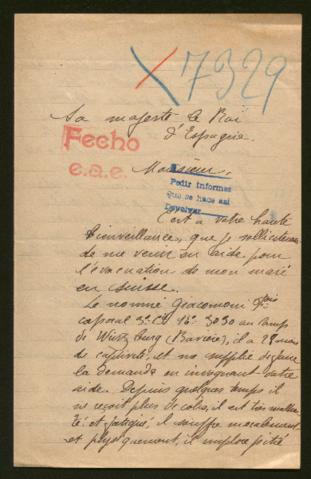 7329
Sa majesté le Roi
d'Espagne
Fecho
e.a.e.
Monsieur,
Pedir informes
que se hace así
Devolver
C'est à votre haute
bienveillance, que je sollicite
de me venir en aide pour
l'évacuation de mon mari
en Suisse.
Le nommé Giacomoni
caporal 3e Cie No 3030 au camp
de Würzburg (Bavière), il a 28 mois
de captivité, et me supplie de faire
la demande en invoquant votre
aide. Depuis quelques temps il
ne reçoit plus de colis, il est très
et fatigué, il souffre moralement
et physiquement, il implore pitié